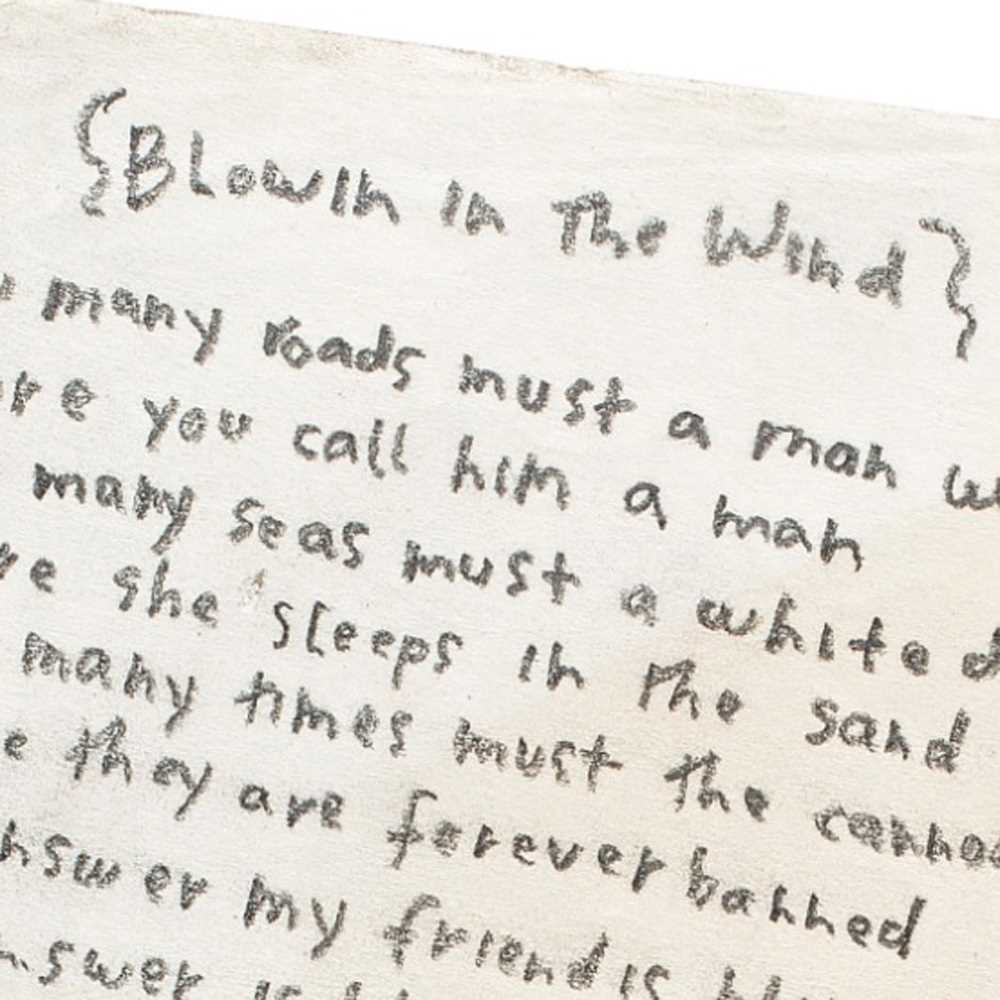 {Blowin in The Wind}
many roads must a man
you call him a man
many seas must a white
she sleeps in the sand
many times must the
they are forever banned
my friend is